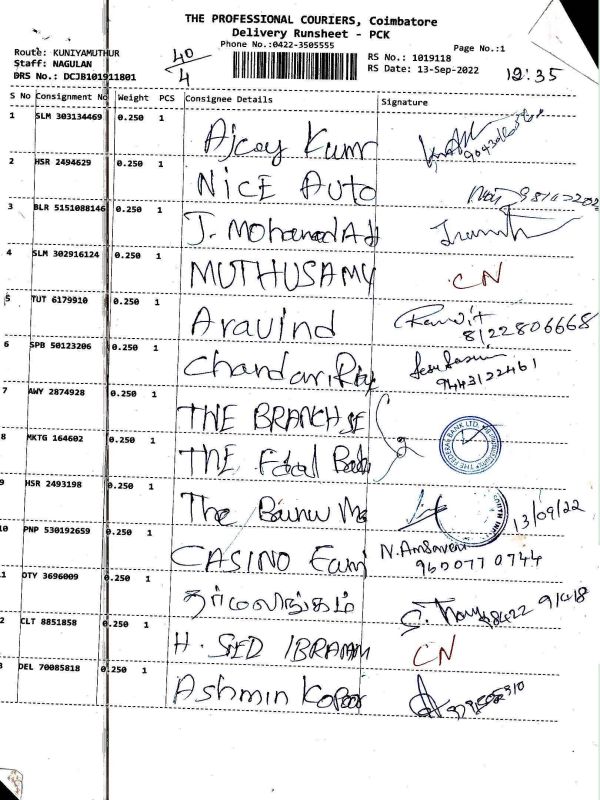 THE PROFESSIONAL COURIERS, Coimbatore
Delivery Runsheet - PCK
Phone No.:0422-3505555
Page No.:1
Route: KUNIYAMUTHUR
Staff: NAGULAN
DRS No.: DCJB101911801
40/4
RS No.: 1019118
RS Date: 13-Sep-2022
12:35
S No Consignment No Weight PCS Consignee Details Signature
1 SLM 303134469 0.250 1 Ajcoy Kumr
2 HSR 2494629 0.250 1 NICE Auto
3 BLR 5151088146 0.250 1 J. Mohamad
4 SLM 302916124 0.250 1 MUTHUSAMY CN
5 TUT 6179910 0.250 1 Aravind 8122806668
6 SPB 50123206 0.250 1 Chandan 9443122461
7 AWY 2874928 0.250 1 THE BRANCH
8 MKTG 164602 0.250 1 THE THE FEDERAL BANK LTD.
9 HSR 2493198 0.250 1 The 13/09/22
10 PNP 530192659 0.250 1 CASINO 960077 0744
1 OTY 3696009 0.250 1 தர்மலிங்கம்
2 CLT 8851858 0.250 1 H. SED IBRAHIM CN
3 DEL 70085818 0.250 1 Ashmin Kapoor